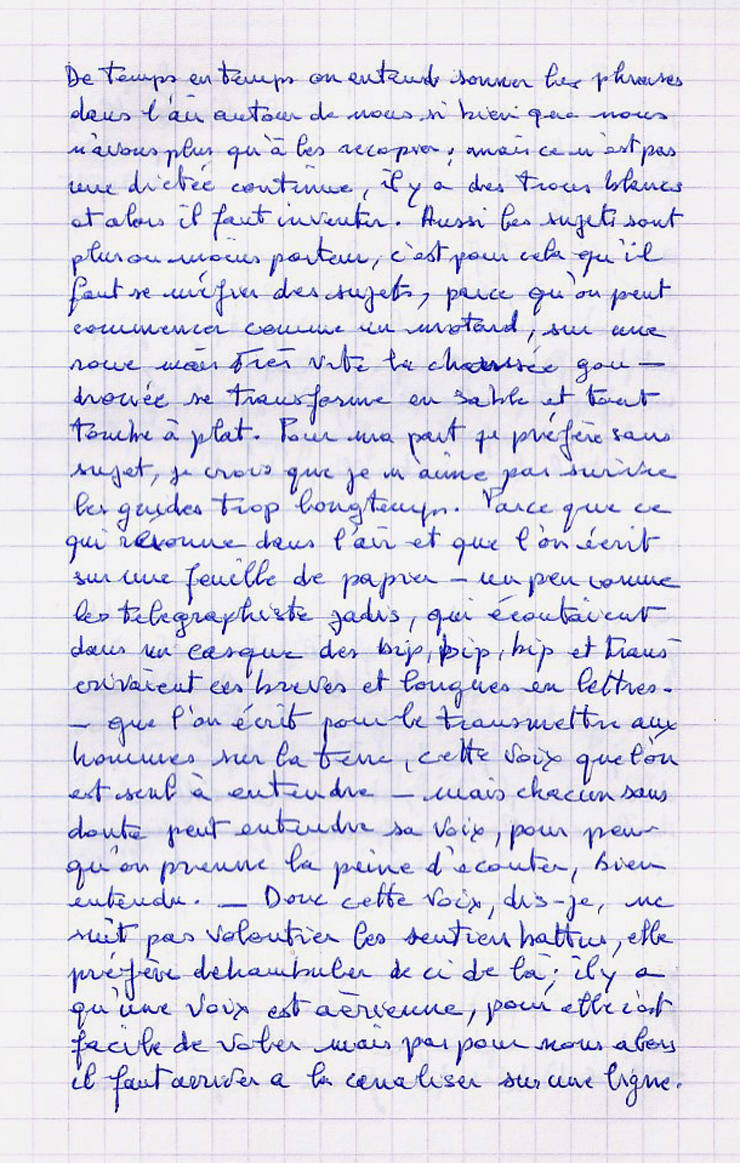 De temps en temps on entend sonner les phrases
dans l'air autour de nous si bien que nous
n'avons plus qu'à les recopier ; mais ce n'est pas
une dictée continue, il y a des trous blancs
et alors il faut inventer. Aussi les sujets sont
plus ou moins porteur, c'est pour cela qu'il
faut se méfier des sujets, parce qu'on peut
commencer comme un motard, sur une
roue mais très vite la chaussée gou-
dronnée se transforme en sable et tout
tombe à plat. Pour ma part je préfère sans
sujet, je crois que je n'aime pas suivre
les guides trop longtemps. Parce que ce
qui résonne dans l'air et que l'on écrit
sur une feuille de papier – un peu comme
les télegraphiste jadis, qui écoutaient
dans un casque des bip, bip, bip et trans
crivaient ces brèves et longues en lettres.
– que l'on écrit pour le transmettre aux
hommes sur la terre, cette voix que l'on
est seul à entendre – mais chacun sans
doute peut entendre sa voix, pour peu
qu'on prenne la peine d'ecouter, bien
entendu. – Donc cette voix, dis-je, ne
suit pas volontier les sentiers battus, elle
préfère dehambuler de ci de là ; il y a
qu'une voix est aérienne, pour elle c'est
facile de voler mais pas pour nous alors
il faut arriver a la canaliser sur une ligne.